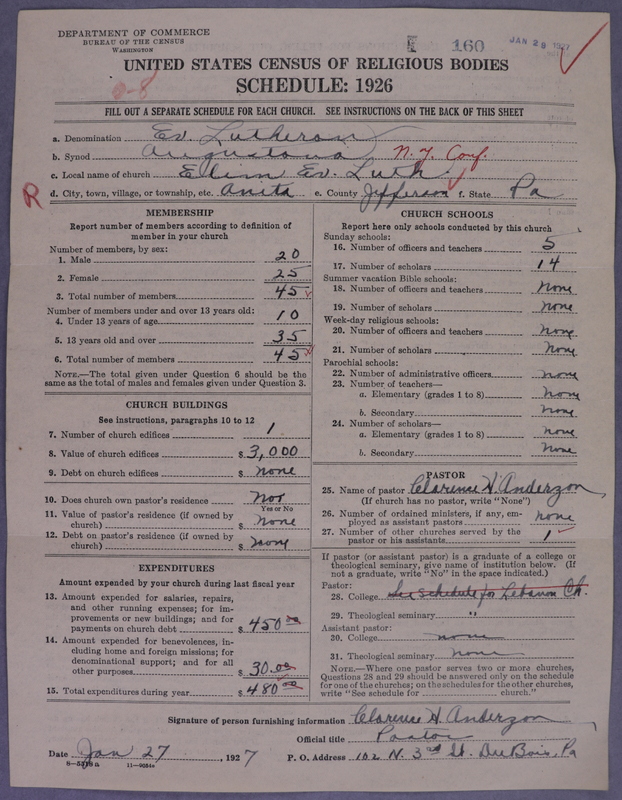 DEPARTMENT OF COMMERCE
BUREAU OF THE CENSUS
WASHINGTON
E 160 JAN 29 1927
UNITED STATES CENSUS OF RELIGIOUS BODIES
SCHEDULE: 1926
0-8
FILL OUT A SEPARATE SCHEDULE FOR EACH CHURCH. SEE INSTRUCTIONS ON THE BACK OF THIS SHEET
a. Denomination Ev. Lutheran
b. Synod Augustana N.Y. Conf.
c. Local name of church Elim Ev. Luth.
R d. City, town, village, or township, etc. Anita e. County Jefferson f. State Pa
MEMBERSHIP
Report number of members according to definition of
member in your church
Number of members, by sex:
1. Male 20
2. Female 25
3. Total number of members 45
Number of members under and over 13 years old:
4. Under 13 years of age 10
5. 13 years old and over 35
6. Total number of members 45
NOTE.—The total given under Question 6 should be the
same as the total of males and females given under Question 3.
CHURCH BUILDINGS
See instructions, paragraphs 10 to 12
7. Number of church edifices 1
8. Value of church edifices $ 3,000
9. Debt on church edifices $ none
10. Does church own pastor's residence Not
Yes or No
11. Value of pastor's residence (if owned by
church) $ None
12. Debt on pastor's residence (if owned by
church) $ none
EXPENDITURES
Amount expended by your church during last fiscal year
13. Amount expended for salaries, repairs,
and other running expenses; for im-
provements or new buildings; and for
payments on church debt $ 450 00
14. Amount expended for benevolences, in-
cluding home and foreign missions; for
denominational support; and for all
other purposes $ 30.00
15. Total expenditures during year $ 480 00
CHURCH SCHOOLS
Report here only schools conducted by this church
Sunday schools:
16. Number of officers and teachers 5
17. Number of scholars 14
Summer vacation Bible schools:
18. Number of officers and teachers None
19. Number of scholars None
Week-day religious schools:
20. Number of officers and teachers None
21. Number of scholars None
Parochial schools:
22. Number of administrative officers none
23. Number of teachers—
a. Elementary (grades 1 to 8) None
b. Secondary None
24. Number of scholars—
a. Elementary (grades 1 to 8) none
b. Secondary None
PASTOR
25. Name of pastor Clarence H. Anderzon
(If church has no pastor, write "None")
26. Number of ordained ministers, if any, em-
ployed as assistant pastors none
27. Number of other churches served by the
pastor or his assistants 1
If pastor (or assistant pastor) is a graduate of a college or
theological seminary, give name of institution below. (If
not a graduate, write "No" in the space indicated.)
Pastor:
28. College See Schedule for Lebanon Ch.
29. Theological seminary "
Assistant pastor:
30. College none
31. Theological seminary none
NOTE.—Where one pastor serves two or more churches,
Questions 28 and 29 should be answered only on the schedule
for one of the churches; on the schedules for the other churches,
write "See schedule for church."
Signature of person furnishing information Clarence H. Anderzon
Official title Pastor
Date Jan 27, 1927 P. O. Address 102 N. 3rd St. DuBois, Pa